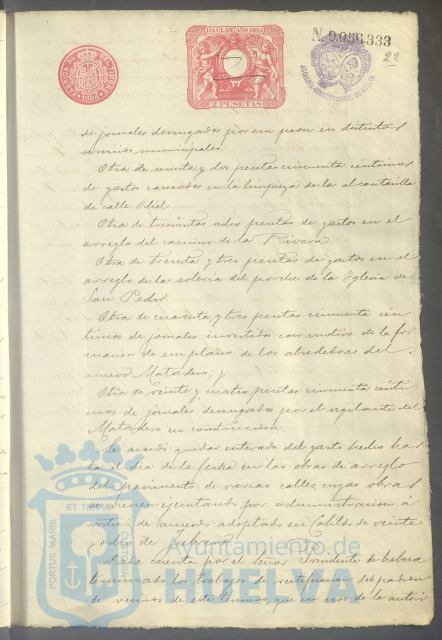 11ª CLASE AÑO 1894
2 PESETAS
1894
N. 9.056.333
22
de jornales devengados por un peon en distintos
servicios municipales.
Otra de cincuenta y dos pesetas cincuenta centimos
de gastos causados en la limpieza de la alcantarilla
de calle Odiel
Otra de trescientas ocho pesetas de gastos en el
arreglo del camino de la Rivera
Otra de treinta y tres pesetas de gastos en el
arreglo de la soleria del porche de la Iglesia de
San Pedro
Otra de cuarenta y tres pesetas cincuenta cen
timos de jornales invertidos con motivo de la for
macion de un plano de los alrededores del
nuevo Matadero; y
Otra de veinte y cuatro pesetas cincuenta cénti
mos de jornales devengados por el vigilante del
Matadero en construccion.
Se acordó quedar enterado del gasto hecho has
ta el dia de la fecha en las obras de arreglo
del pavimento de varias calles, cuyas obras
se vienen ejecutando por administracion á
virtud de acuerdo adoptado en Cabildo de veinte
y ocho de Febrero.
Dada cuenta por el Señor Presidente de haberse
terminado los trabajos de rectificacion del padron
de vecinos de este termino, que en uso de la autori
PORTUS MARIS
ET TERRÆ
CUSTODIA
Ayuntamiento de
HUELVA